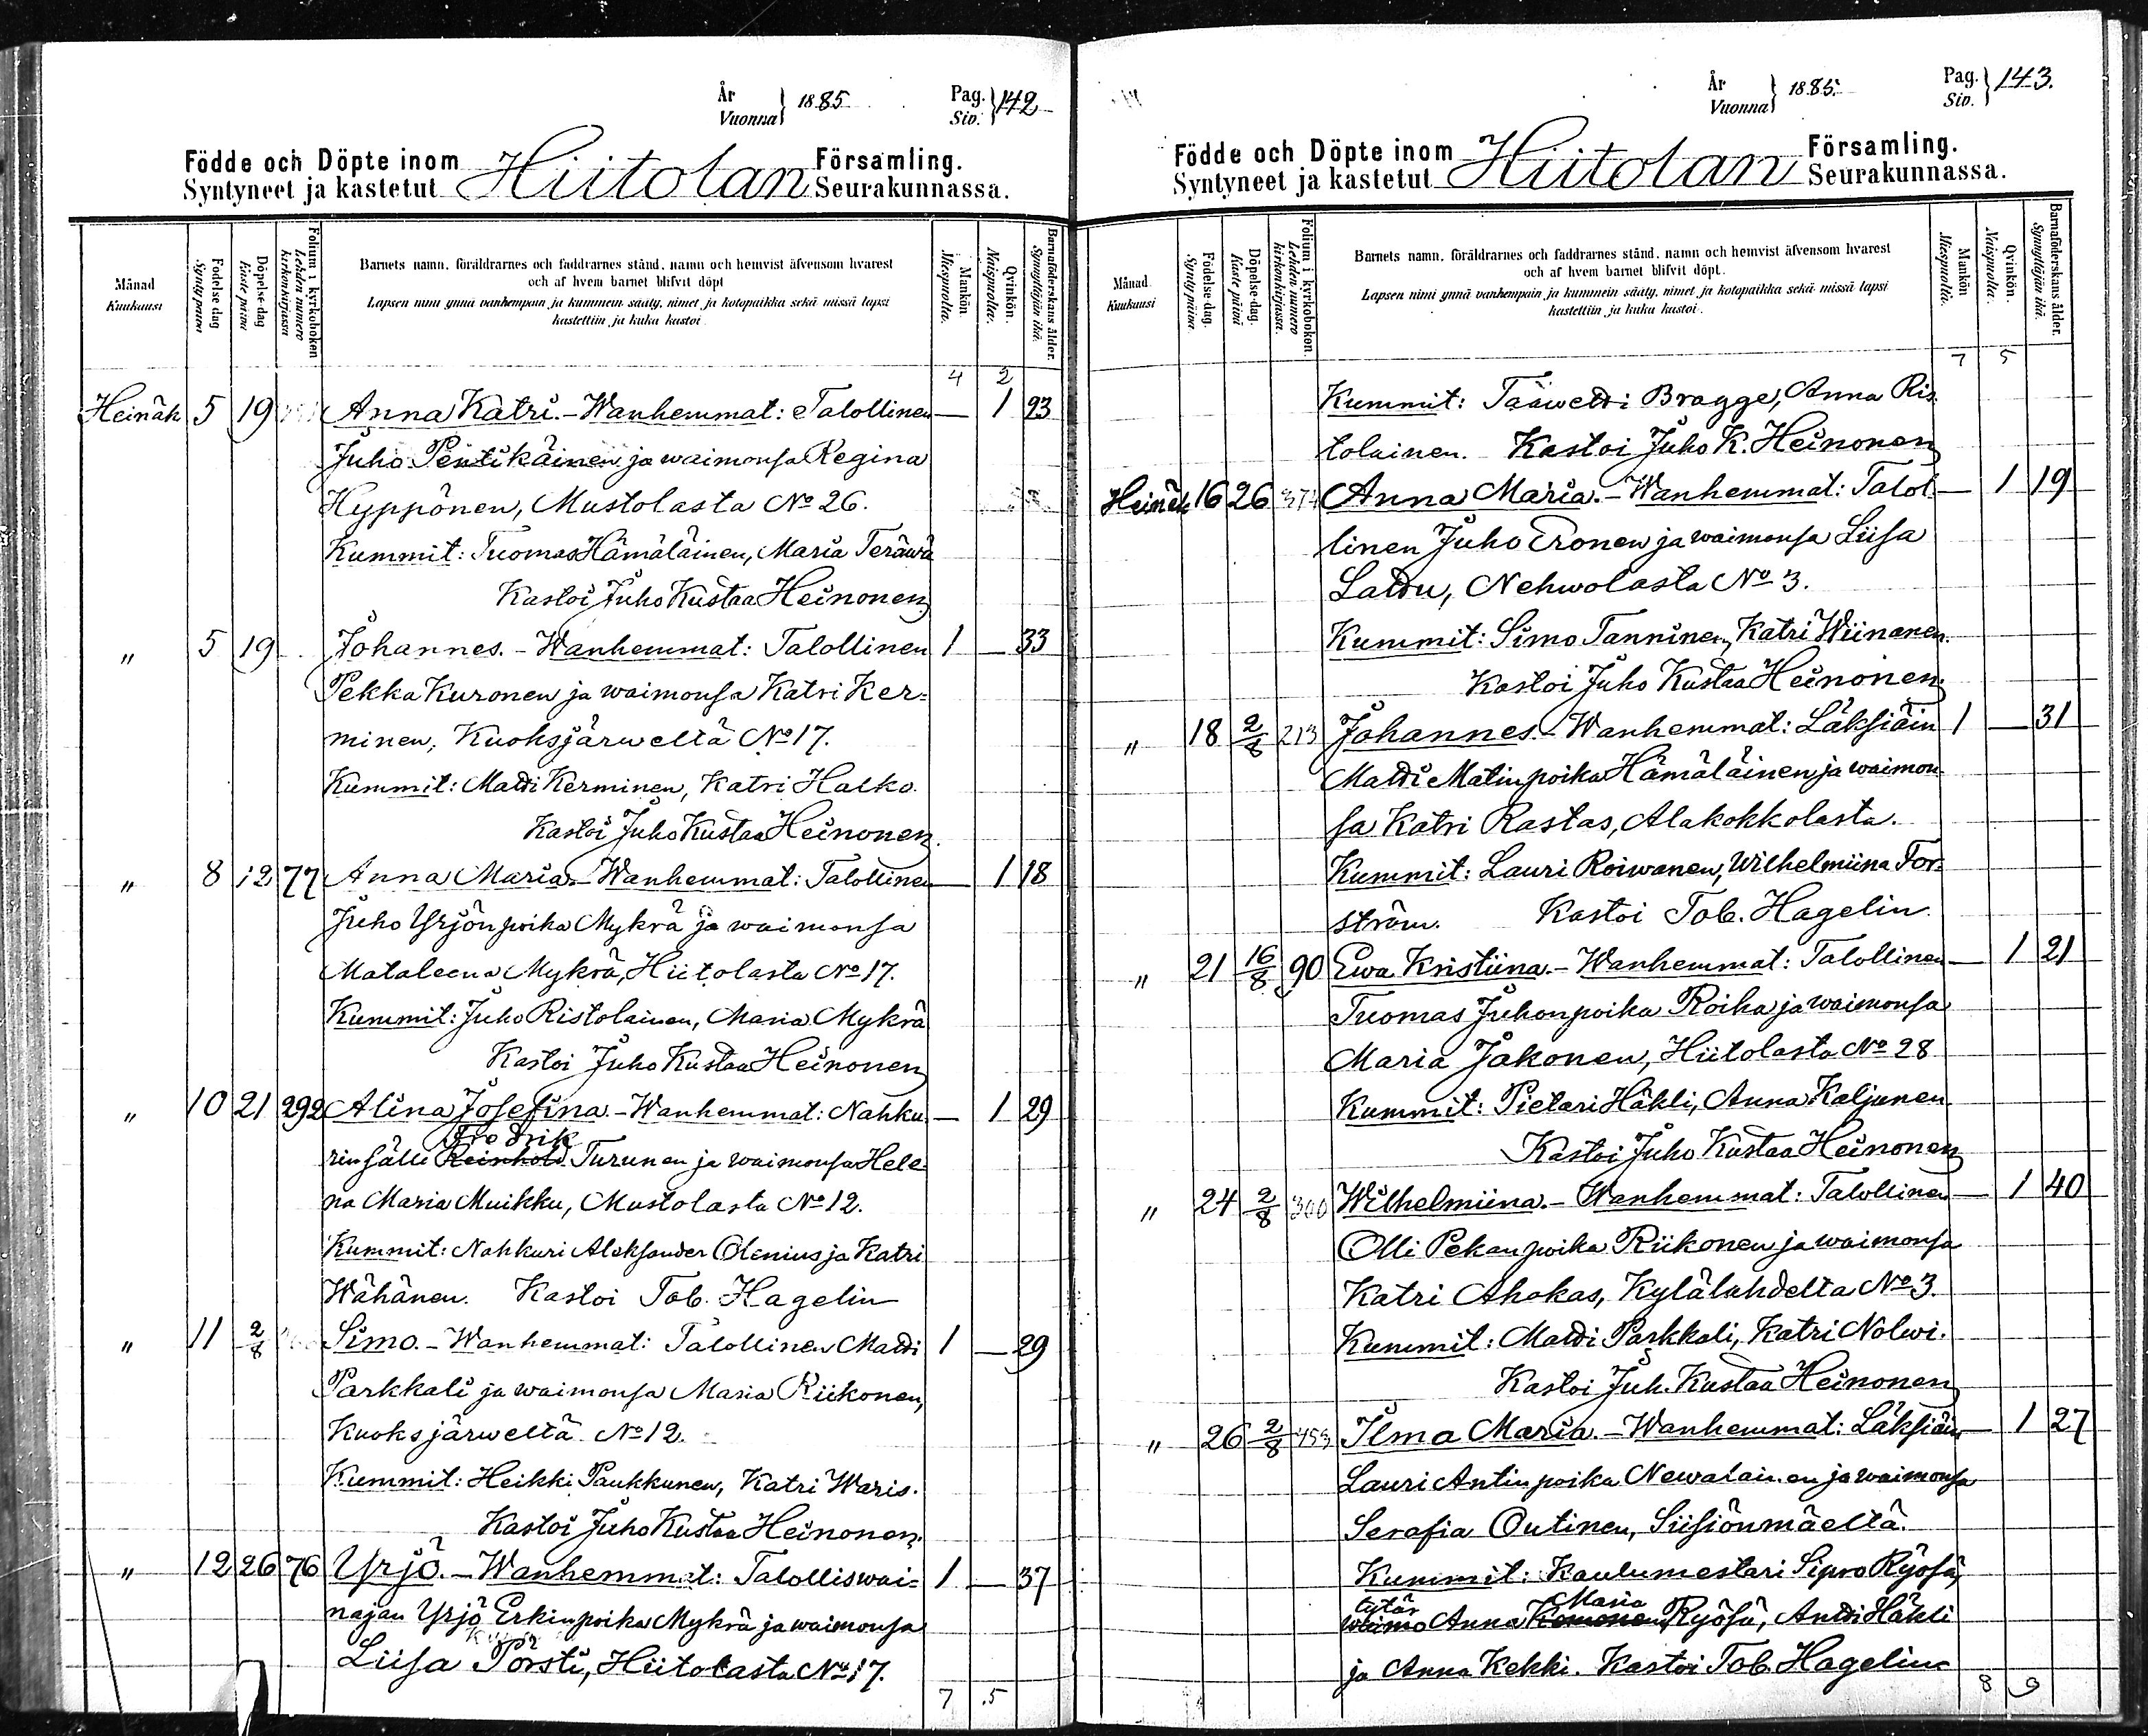 År
Vuonna } 1885 Pag.
Siv. } 142
Födde och Döpte inom Hiitolan Församling.
Syntyneet ja kastetut Seurakunnassa.
Månad
Kuukausi
Födelse dag
Synty päivä
Döpelse dag
Kaste päivä
Folium i kyrkoboken
Lehden numero kirkonkirjassa
Barnets namn, föräldrarnes och faddrarnes stånd, namn och hemvist äfvensom hvarest
och af hvem barnet blifvit döpt
Lapsen nimi ynnä vanhempain ja kummein sääty, nimet ja kotopaikka sekä missä lapsi
kastettiin ja kuka kastoi.
Mankön.
Miespuolia.
Qvinkön.
Naispuolia.
Barnaföderskans ålder.
Synnyttäjän ikä.
4 2
Heinäk 5 19 Anna Katri. - Wanhemmat: Talollinen — 1 23
Juho Pentikäinen ja waimonsa Regina
Hyppönen, Mustolasta No 26.
Kummit: Tuomas Hämäläinen, Maria Teräwä
Kastoi Juho Kustaa Heinonen
" 5 19 Johannes. - Wanhemmat: Talollinen 1 — 33
Pekka Kuronen ja waimonsa Katri Ker-
minen, Kuoksjärweltä No 17.
Kummit: Matti Kerminen, Katri Halko.
Kastoi Juho Kustaa Heinonen.
" 8 12 77 Anna Maria - Wanhemmat: Talollinen — 1 18
Juho Yrjönpoika Mykrä ja waimonsa
Mataleena Mykrä, Hiitolasta No 17.
Kummit: Juho Ristolainen, Maria Mykrä
Kastoi Juho Kustaa Heinonen
" 10 21 292 Alina Josefina. - Wanhemmat: Nahku- — 1 29
Fredrik
rinsälli Reinhold Turunen ja waimonsa Hele-
na Maria Muikku, Mustolasta No 12.
Kummit: Nahkuri Aleksander Olenius ja Katri
Wähänen. Kastoi Tob. Hagelin
" 11 2/8 Simo. - Wanhemmat: Talollinen Matti 1 — 29
Parkkali ja waimonsa Maria Riikonen,
Kuoksjärweltä No 12.
Kummit: Heikki Paukkunen, Katri Waris.
Kastoi Juho Kustaa Heinonen.
" 12 26 76 Yrjö. - Wanhemmat: Talolliswai- 1 — 37
najan Yrjö Erkinpoika Mykrä ja waimonsa
Liisa Pörsti, Hiitolasta No 17.
7 5
År
Vuonna } 1885. Pag.
Siv. } 143.
Födde och Döpte inom Hiitolan Församling.
Syntyneet ja kastetut Seurakunnassa.
Månad
Kuukausi
Födelse dag.
Synty päivä.
Döpelse-dag.
Kaste päivä
Folium i kyrkobokon.
Lehden numero kirkonkirjassa.
Barnets namn, föräldrarnes och faddrarnes stånd, namn och hemvist äfvensom hvarest
och af hvem barnet blifvit döpt.
Lapsen nimi ynnä vanhempain ja kummein sääty, nimet ja kotopaikka sekä missä lapsi
kastettiin ja kuka kastoi.
Mankön
Miespuolia.
Qvinkön.
Naispuolia.
Barnaföderskans ålder.
Synnyttäjän ikä.
7 5
Kummit: Taawetti Bragge, Anna Ris-
tolainen. Kastoi Juho K. Heinonen
Heinäk 16 26 Anna Maria. - Wanhemmat: Talol- — 1 19
linen Juho Eronen ja waimonsa Liisa
Lattu, Nehwolasta No 3.
Kummit: Simo Tanninen, Katri Wiinanen.
Kastoi Juho Kustaa Heinonen.
" 18 2/8 213 Johannes. - Wanhemmat: Läksiäin 1 — 31
Matti Matinpoika Hämäläinen ja waimon-
sa Katri Rastas, Alakokkolasta.
Kummit: Lauri Roiwanen, Wilhelmiina For-
ström. Kastoi Tob. Hagelin.
" 21 16/8 90 Ewa Kristiina. - Wanhemmat: Talollinen — 1 21
Tuomas Juhonpoika Roiha ja waimonsa
Maria Jakonen, Hiitolasta No 28
Kummit: Pietari Häkli, Anna Kaljunen
Kastoi Juho Kustaa Heinonen
" 24 2/8 300 Wilhelmiina. - Wanhemmat: Talollinen — 1 40
Olli Pekanpoika Riikonen ja waimonsa
Katri Ahokas, Kylälahdelta No 3.
Kummit: Matti Parkkali, Katri Nolwi.
Kastoi Juh. Kustaa Heinonen
" 26 2/8 Ilma Maria. - Wanhemmat: Läksiäin — 1 27
Lauri Antinpoika Newalainen ja waimonsa
Serafia Outinen, Siisiönmäeltä.
Kummit: Kaulumestari Sipro Ryösä,
tytär Maria
waimo Anna Komonen Ryösä, Antti Häkli
ja Anna Kekki. Kastoi Tob. Hagelin
8 9